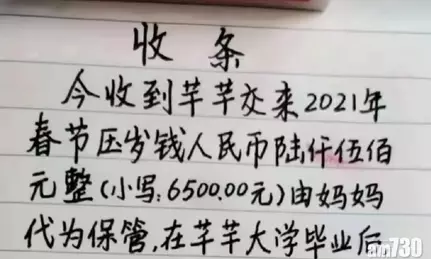 收条
今收到芊芊交来2021年
春节压岁钱人民币陆仟伍佰
元整(小写:6500.00元)由妈妈
代为保管,在芊芊大学毕业后,
am730